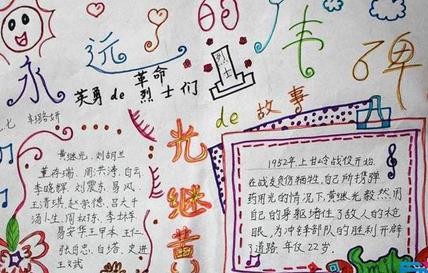 永远的丰碑
英勇de革命烈士们
烈士
de 故事
光继黄
黄继光、刘胡兰
董存瑞、周洪涛、白云
李晓辉、刘震东、易凤
王清琪、赵余德、吕大千
汤小生、李士珍
易安华、王甲本、
张自忠、白塔、史进
1952年上甘岭战役开始,
在战友负伤牺牲,自己所携弹
药用光的情况下,黄继光毅然用
自己的身躯堵住了敌人的枪
眼,为冲锋部队的胜利开辟
了道路年仅22岁.